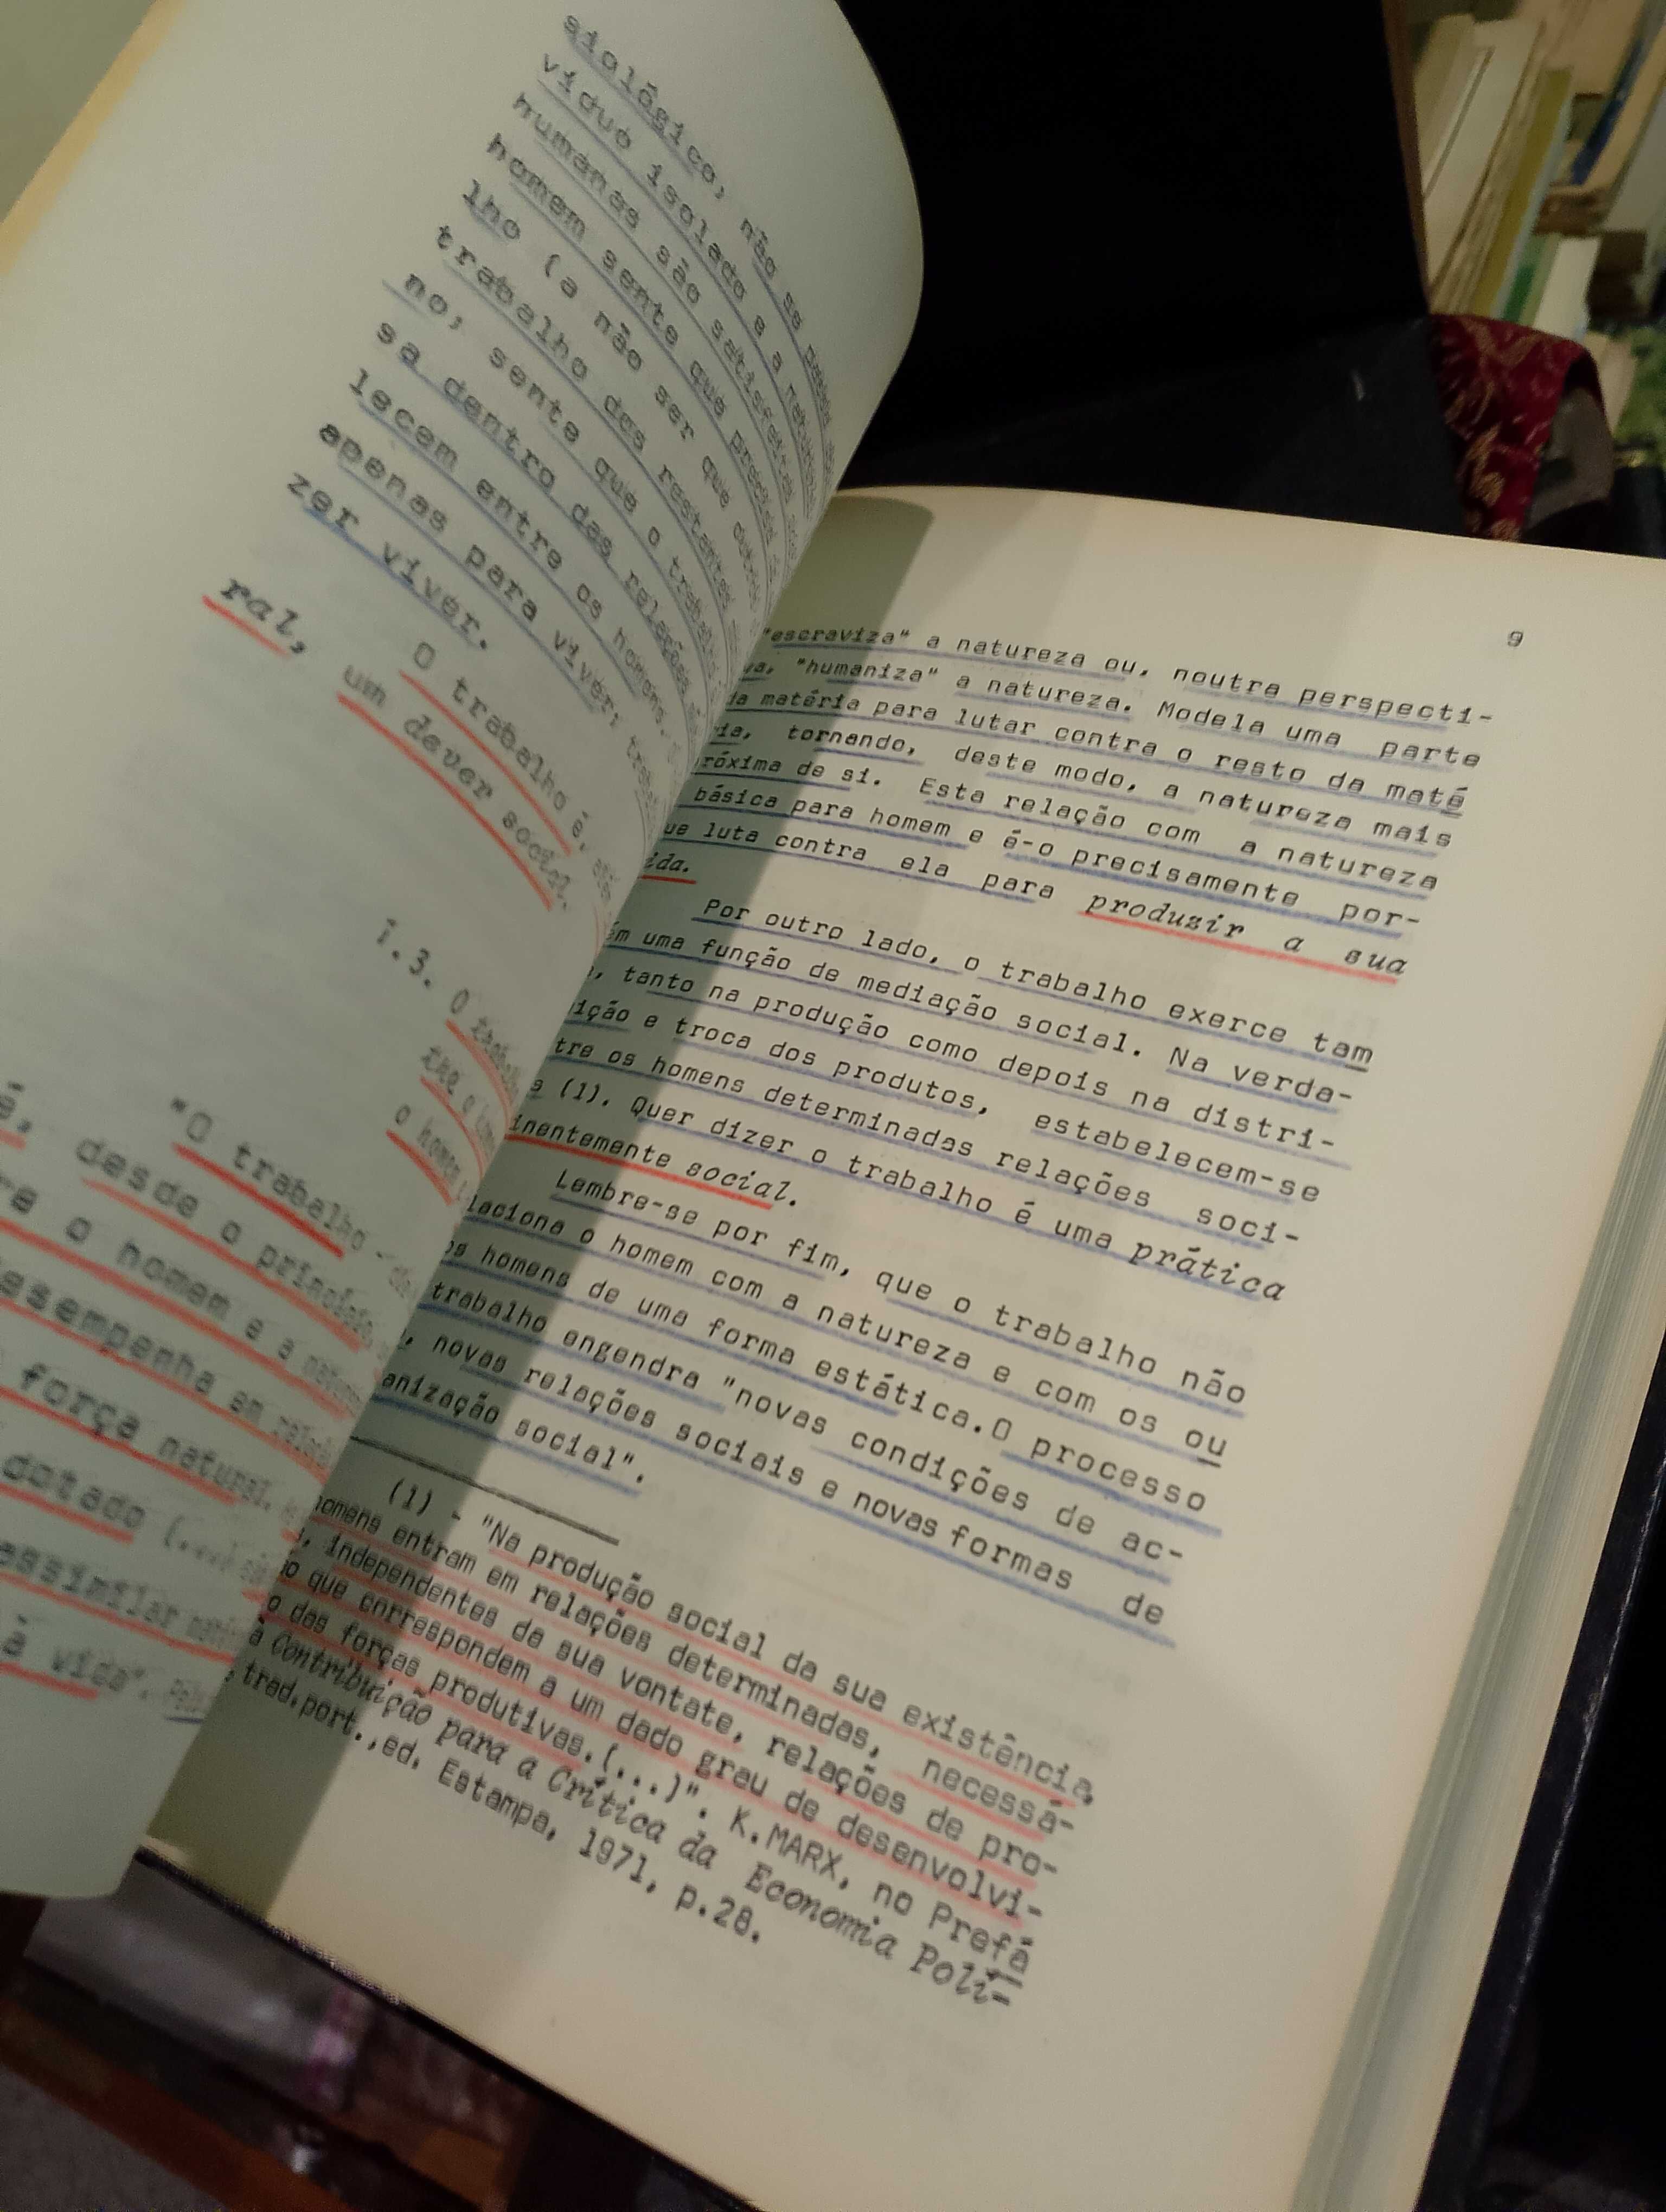 siológico; não se
víduo isolado e a natureza
humanas são satisfeitas
homem sente que precisa
lho (a não ser que outros
trabalho dos restantes
no; sente que o trabalho
sa dentro das relações
lecem entre os homens.
apenas para viver; trabal
zer viver.
O trabalho é,
ral, um dever social.
1.3. O trabalho
tre o
o homem
"O trabalho -
é, desde o princípio
o homem e a natureza
esempenha em relação
força natural.
dotado (...)
assimilar
à vida".
9
"escraviza" a natureza ou, noutra perspecti-
va, "humaniza" a natureza. Modela uma parte
da matéria para lutar contra o resto da maté
ria, tornando, deste modo, a natureza mais
próxima de si. Esta relação com a natureza
básica para homem e é-o precisamente por-
que luta contra ela para produzir a sua
ida.
Por outro lado, o trabalho exerce tam
ém uma função de mediação social. Na verda-
, tanto na produção como depois na distri-
ição e troca dos produtos, estabelecem-se
tre os homens determinadas relações soci-
s (1). Quer dizer o trabalho é uma prática
inentemente social.
Lembre-se por fim, que o trabalho não
laciona o homem com a natureza e com os ou
os homens de uma forma estática.O processo
trabalho engendra "novas condições de ac-
, novas relações sociais e novas formas de
anização social".
(1) - "Na produção social da sua existência,
homens entram em relações determinadas, necessá-
s, independentes da sua vontate, relações de pro-
o que correspondem a um dado grau de desenvolvi-
o das forças produtivas.(...)". K.MARX, no Prefá
à Contribuição para a Crítica da Economia Polí-
, trad.port.,ed. Estampa, 1971, p.28.